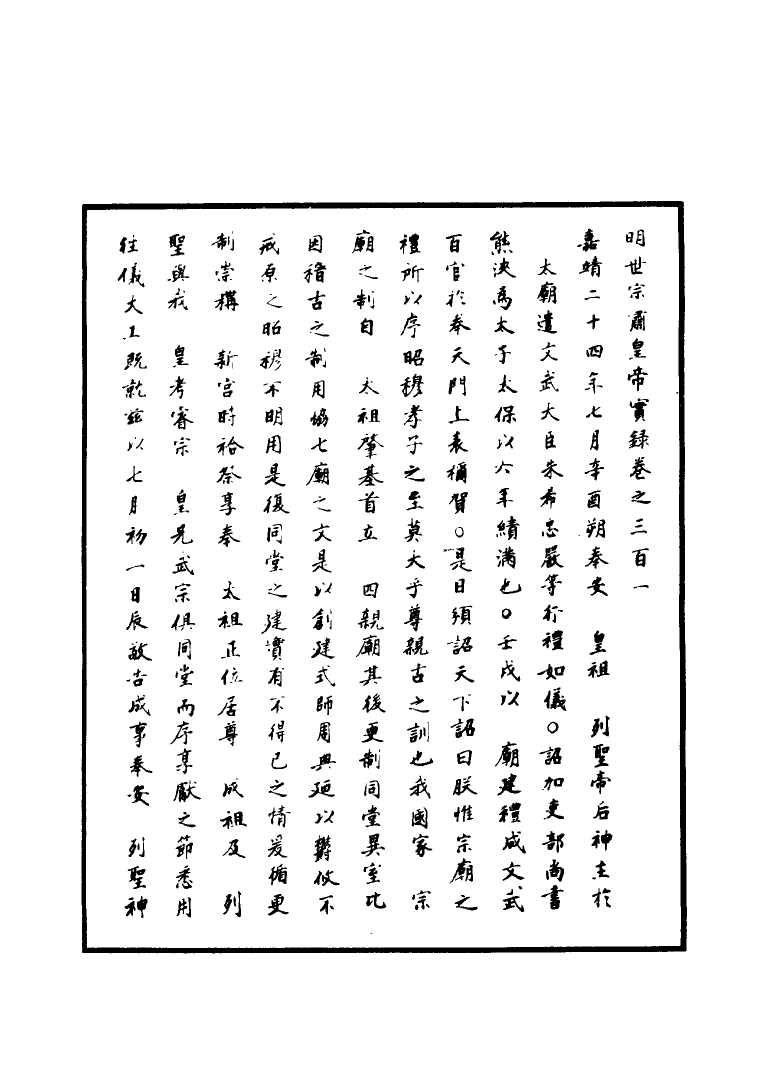 明世宗肅皇帝實録卷之三百一
嘉靖二十四年七月辛酉朔奉安　皇祖　列聖帝后神主於
太廟遣文武大臣朱希忠嚴等行禮如儀○詔加吏部尚書
熊浹為太子太保以六年績滿也○壬戌以　廟建禮成文武
百官於奉天門上表稱賀○是日頒詔天下詔曰朕惟宗廟之
禮所以序昭穆孝子之至莫大乎尊親古之訓也我國家　宗
廟之制自　太祖肇基首立　四親廟其後更制同堂異室比
因稽古之制用倣七廟之文是以創建式師周典廼以鬱攸不
戒原之昭穆不明用是復同堂之建實有不得已之情爰循更
制崇構　新宫時祫祭享奉　太祖正位居尊　成祖及　列
聖與我　皇考睿宗　皇兄武宗俱同堂而序享獻之節悉用
徃儀大工既就兹以七月初一日辰敬告成事奉安　列聖神